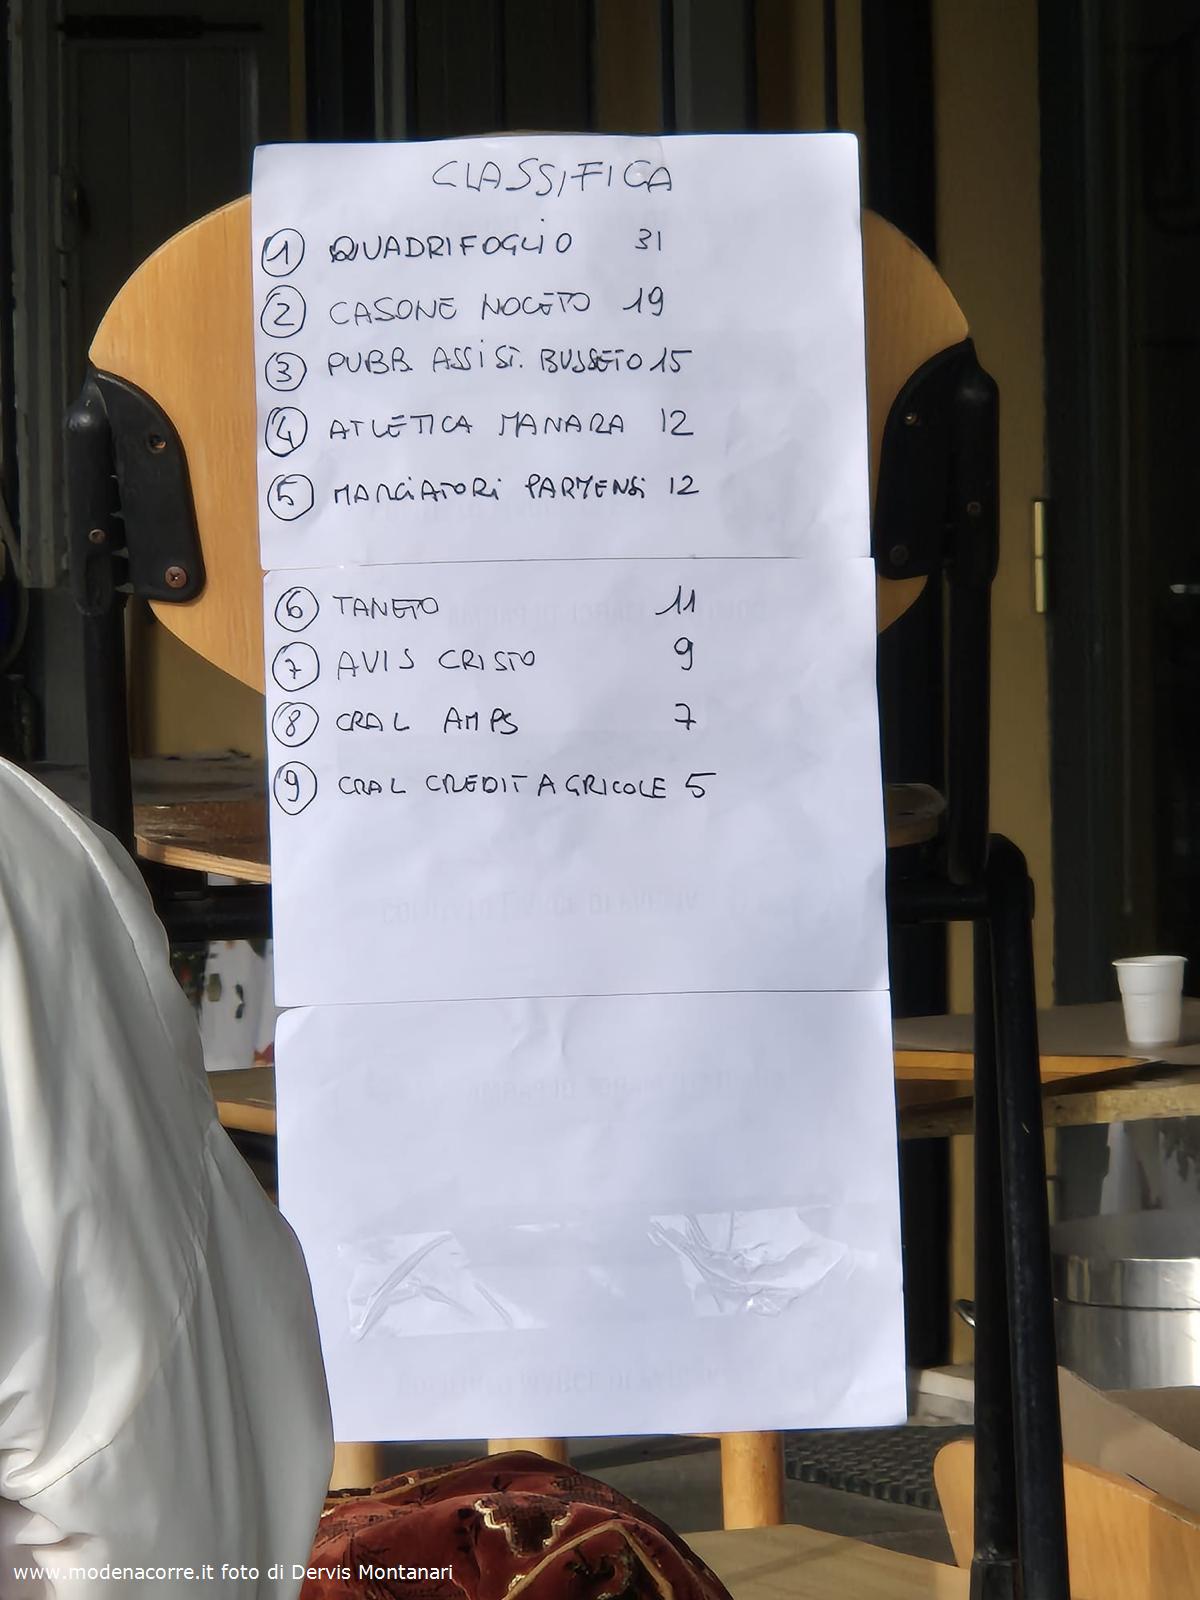 CLASSIFICA
1 QUADRIFOGLIO 31
2 CASONE NOCETO 19
3 PUBB. ASSIST. BUSSETO 15
4 ATLETICA MANARA 12
5 MARCIATORI PARMENSI 12
6 TANETO 11
7 AVIS CRISTO 9
8 CRAL AMPS 7
9 CRAL CREDIT AGRICOLE 5
www.modenacorre.it foto di Dervis Montanari